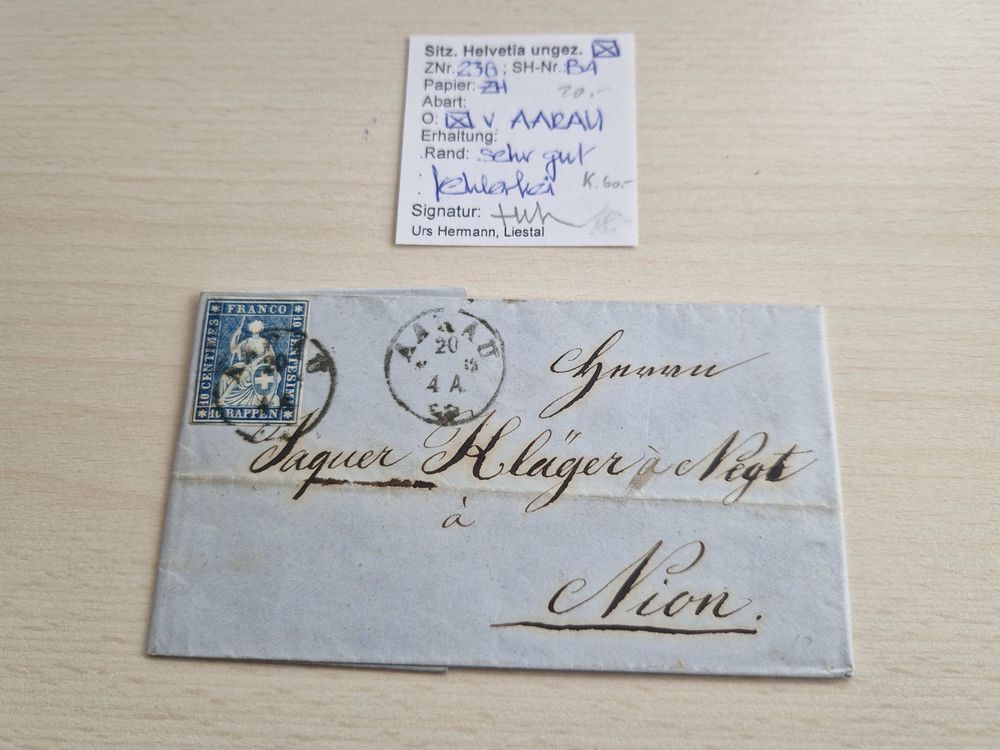 Sitz. Helvetia ungez. ☒
ZNr. 23G; SH-Nr. B4
Papier: ZH 20.-
Abart:
O: ☒ v AARAU
Erhaltung:
Rand: sehr gut
fehlerfrei K. 60.-
Signatur:
Urs Hermann, Liestal
FRANCO
10 CENTIMES
10 CENTESIMI
10 RAPPEN
AARAU
20
4 A.
Herrn
Jaquer Kläger à Negt
à
Nion.